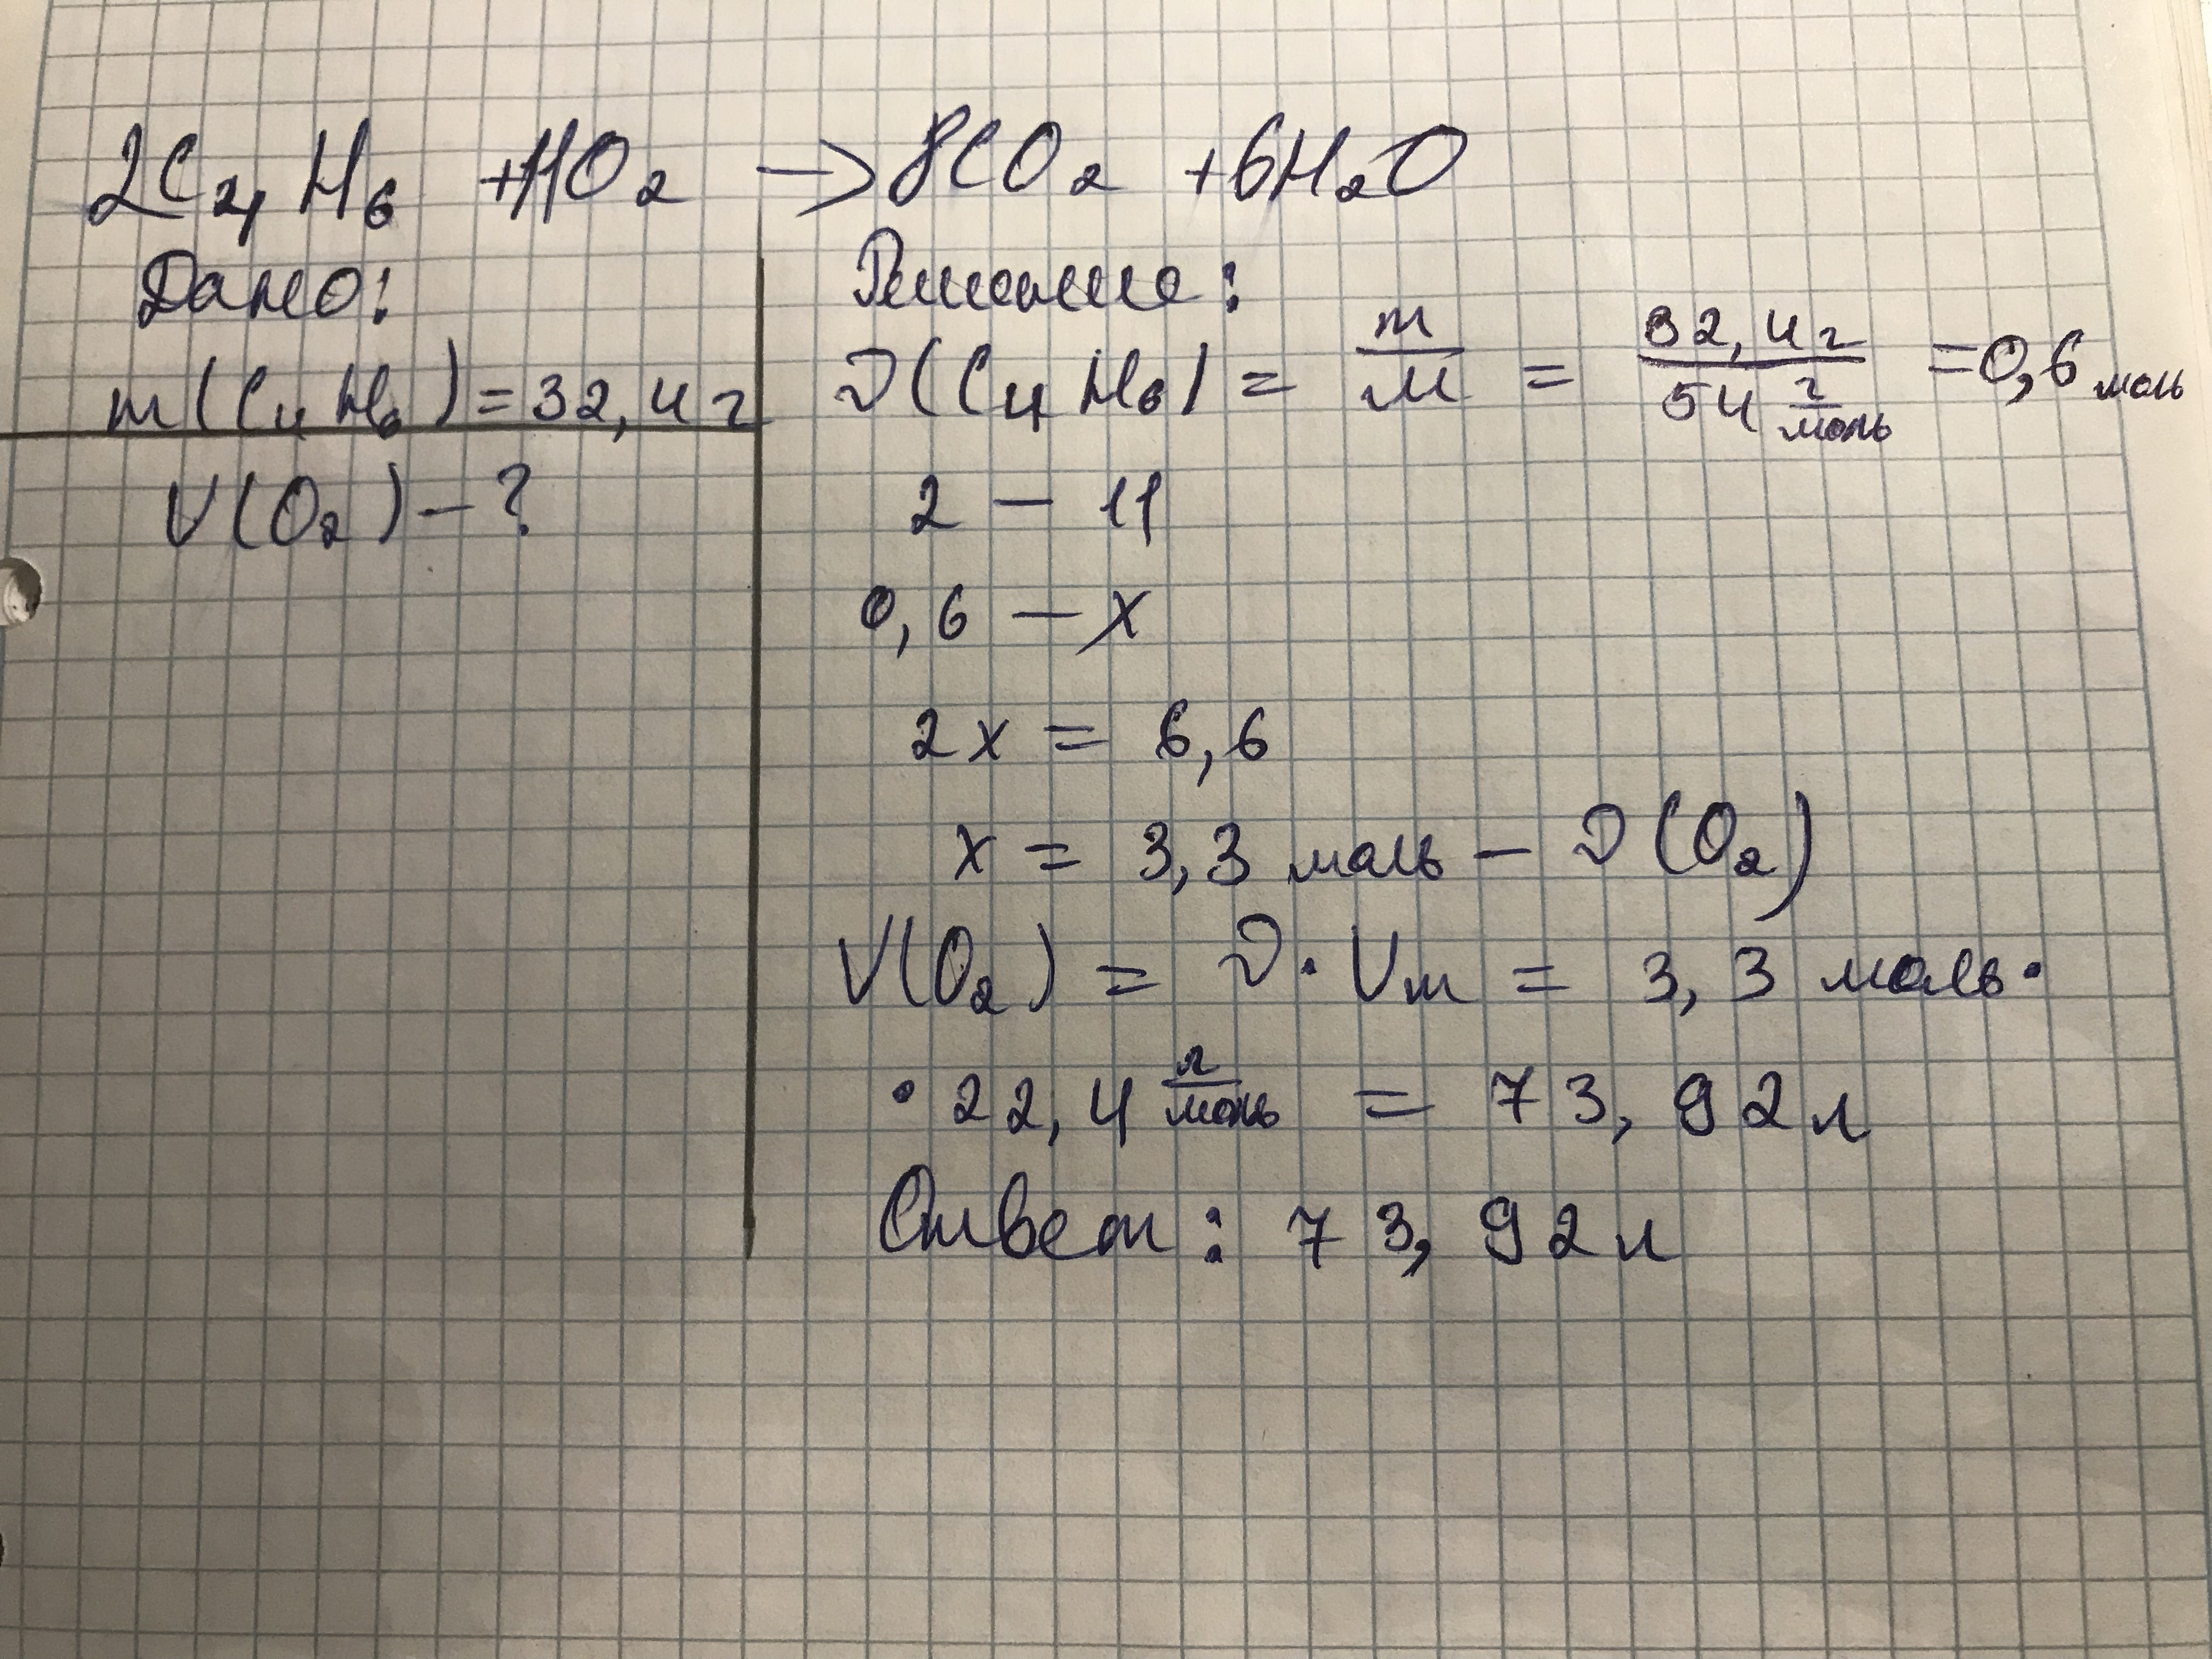 2C₄H₆ + 11O₂ → 8CO₂ + 6H₂O
Дано:
m(C₄H₆) = 32,4 г
V(O₂) – ?
Решение:
ν(C₄H₆) = m/M = 32,4 г / 54 г/моль = 0,6 моль
2 – 11
0,6 – x
2x = 6,6
x = 3,3 моль – ν(O₂)
V(O₂) = ν · Vm = 3,3 моль ·
· 22,4 л/моль = 73,92 л
Ответ: 73,92 л